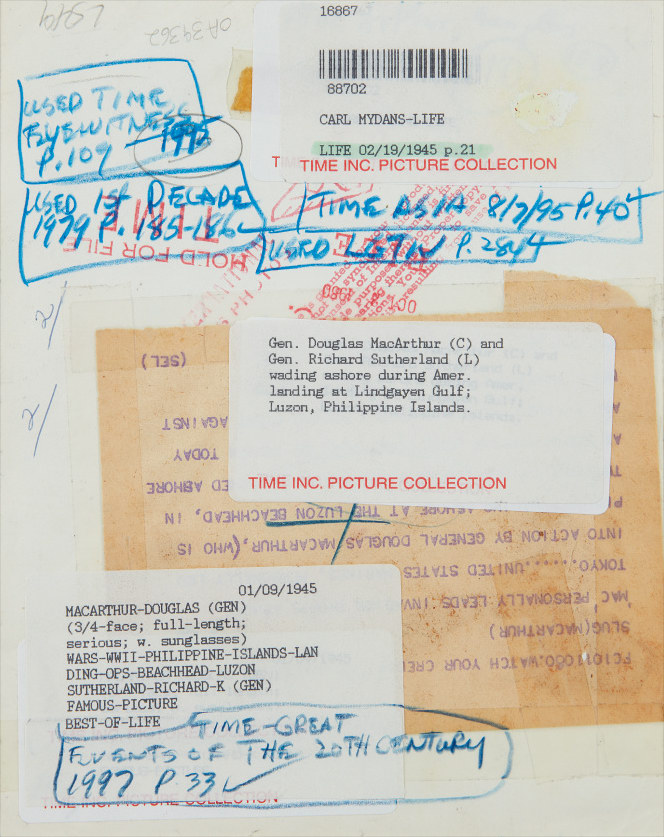 16867
OA39362
88702
CARL MYDANS-LIFE
LIFE 02/19/1945 p.21
TIME INC. PICTURE COLLECTION
USED TIME
EYEWITNESS
P.109 1995
USED 1st DECADE
1979 P. 185-186
TIME ASIA 8/7/95 P.40
USED LIFE P.284
HOLD FOR FILE
OCT 1980
Gen. Douglas MacArthur (C) and
Gen. Richard Sutherland (L)
wading ashore during Amer.
landing at Lindgayen Gulf;
Luzon, Philippine Islands.
TIME INC. PICTURE COLLECTION
(SEL)
AGAINST
TODAY
ED ASHORE
ASHORE AT THE LUZON BEACHHEAD, IN
INTO ACTION BY GENERAL DOUGLAS MACARTHUR,(WHO, IS
TOKYO.......UNITED STATES
'MAC' PERSONALLY LEADS
SLUG(MACARTHUR)
WATCH YOUR
01/09/1945
MACARTHUR-DOUGLAS (GEN)
(3/4-face; full-length;
serious; w. sunglasses)
WARS-WWII-PHILIPPINE-ISLANDS-LAN
DING-OPS-BEACHHEAD-LUZON
SUTHERLAND-RICHARD-K (GEN)
FAMOUS-PICTURE
BEST-OF-LIFE
TIME-GREAT
EVENTS OF THE 20TH CENTURY
1997 P 33
TIME INC. PICTURE COLLECTION